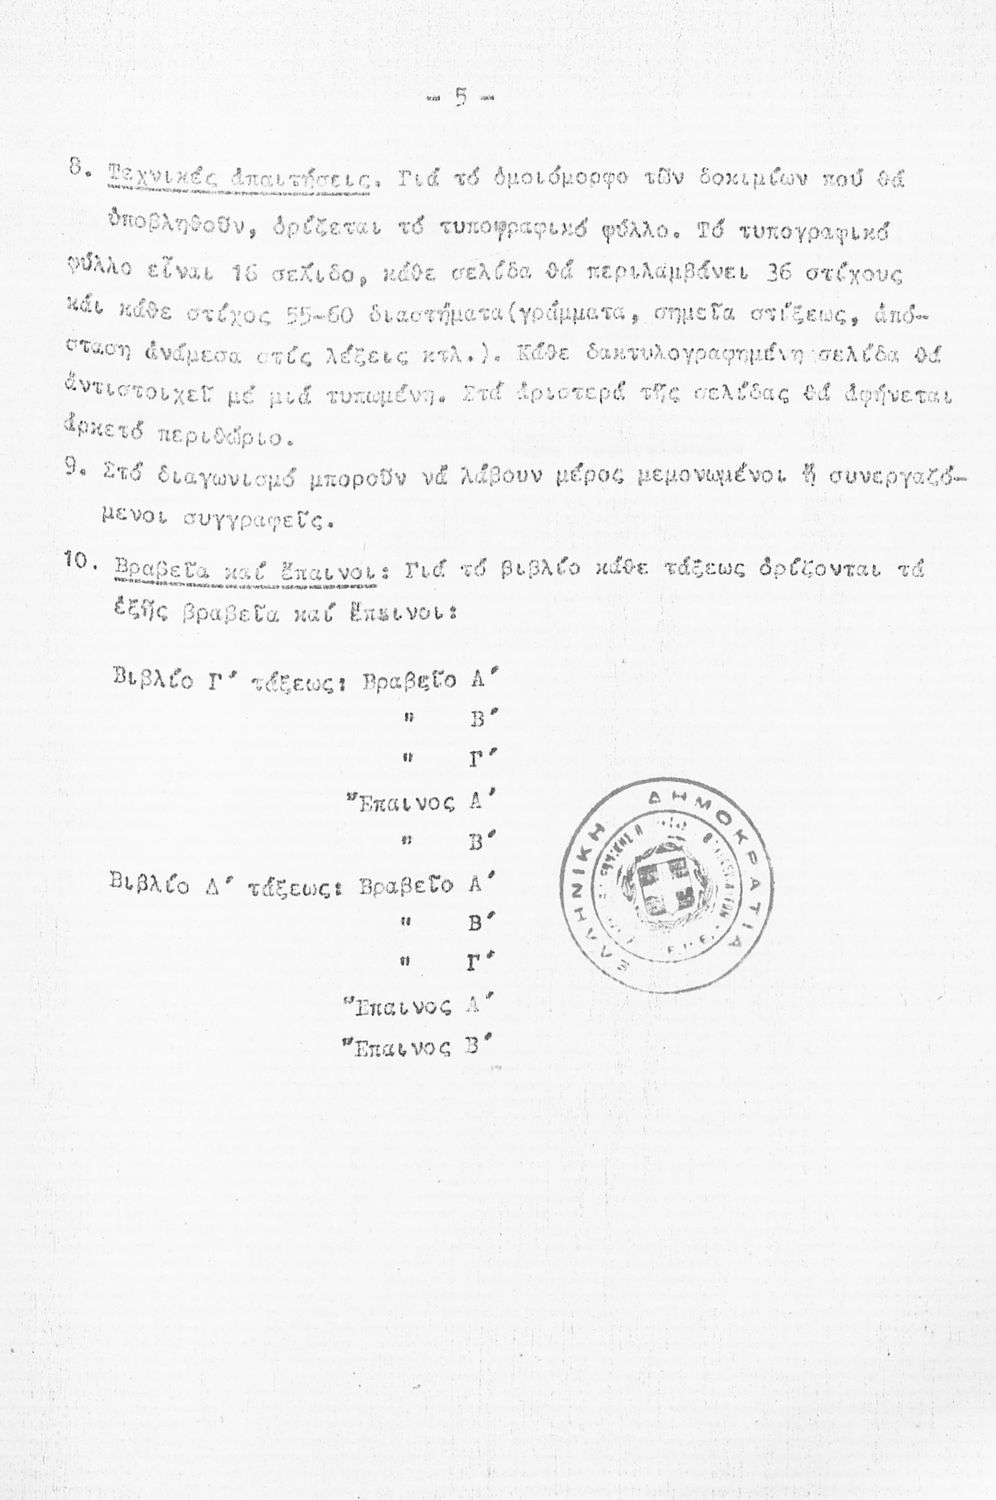 - 5 -
8. Τεχνικές ἀπαιτήσεις. Γιά τό ὁμοιόμορφο τῶν δοκιμίων πού θά
ὑποβληθοῦν, ὁρίζεται τό τυπογραφικό φύλλο. Τό τυπογραφικό
φύλλο εἶναι 16 σελίδο, κάθε σελίδα θά περιλαμβάνει 36 στίχους
κάι κάθε στίχος 55-60 διαστήματα(γράμματα, σημεῖα στίξεως, ἀπό-
σταση ἀνάμεσα στίς λέξεις κτλ.). Κάθε δακτυλογραφημένη σελίδα θά
ἀντιστοιχεῖ μέ μιά τυπωμένη. Στά ἀριστερά τῆς σελίδας θά ἀφήνεται
ἀρκετό περιθώριο.
9. Στό διαγωνισμό μποροῦν νά λάβουν μέρος μεμονωμένοι ἤ συνεργαζό-
μενοι συγγραφεῖς.
10. Βραβεῖα καί ἔπαινοι: Γιά τό βιβλίο κάθε τάξεως ὁρίζονται τά
ἑξῆς βραβεῖα καί ἔπαινοι:
Βιβλίο Γ´ τάξεως: Βραβεῖο Α´
" Β´
" Γ´
"Επαινος Α´
" Β´
Βιβλίο Δ´ τάξεως: Βραβεῖο Α´
" Β´
" Γ´
"Επαινος Α´
"Επαινος Β´
ΕΛΛΗΝΙΚΗ ΔΗΜΟΚΡΑΤΙΑ